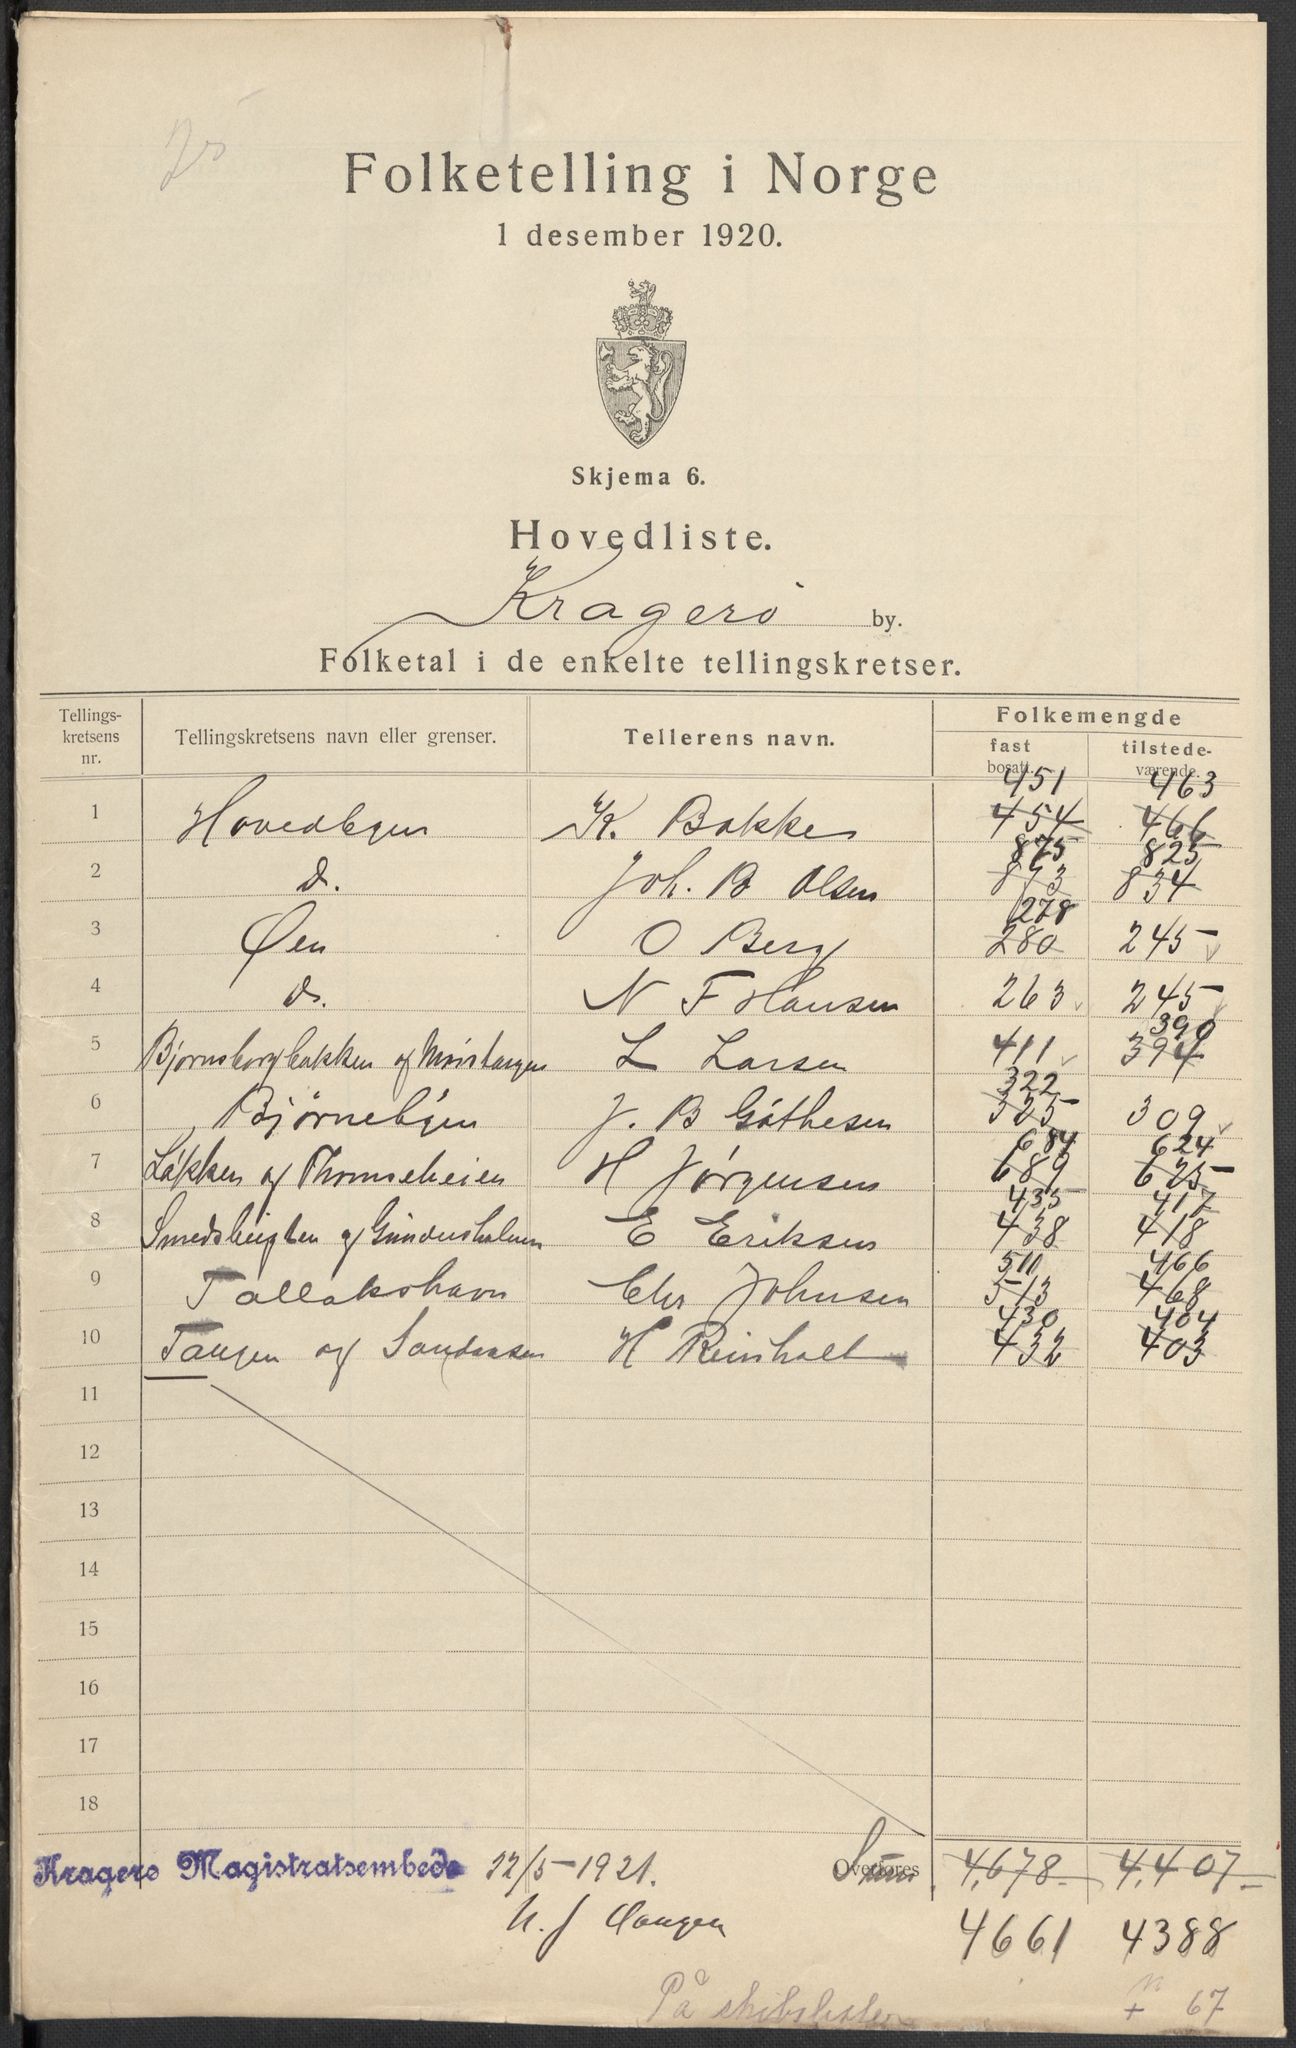 Folketelling i Norge
1 desember 1920.
Skjema 6.
Hovedliste.
Kragerø by.
Folketal i de enkelte tellingskretser.
Tellings-kretsens nr. Tellingskretsens navn eller grenser. Tellerens navn. Folkemengde
fast bosatt. tilstede-værende.
451 463
1 Hovedbyen K. Bakke 454 466
875 825
2 do. Joh. B Olsen 873 834
278
3 Øen O Berg 280 245
4 do. N F Hansen 263 245
390
5 Bjørnsborgbakken og L Larsen 411 394
322
6 Bjørnebyen J. B Gjøthesen 325 309
684 624
7 Løkken og Thomseheien H Jørgensen 689 625
435 417
8 Smedsbugten og Gunnarsholmen E Eriksen 438 418
511 466
9 Tallakshavn Chr Johnsen 513 468
430 404
10 Tangen og H Reinholt 432 403
11
12
13
14
15
16
17
18
Kragerø Magistratsembede 12/5-1921. Overføres Sum 4.678 4.407
4661 4388
På skibslister + 67